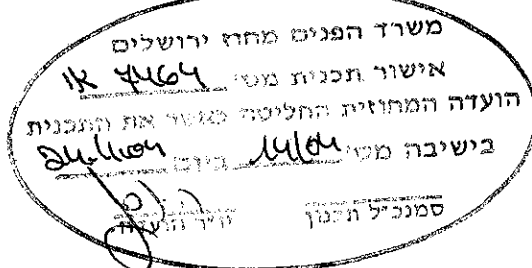 משרד הפנים מחוז ירושלים
אישור תכנית מס' 7464 א'
הועדה המחוזית החליטה לאשר את התכנית
בישיבה מס' 14/04 ביום
סמנכ"ל תכנון יו"ר הועדה